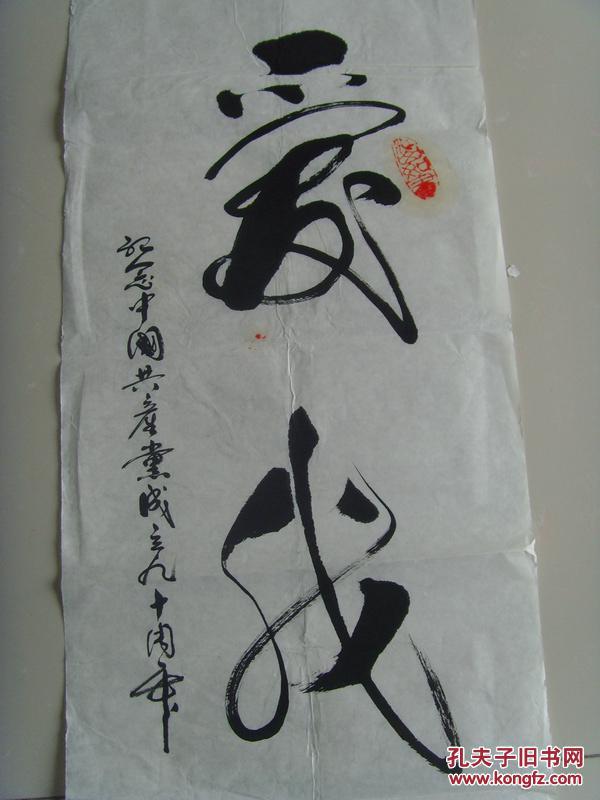 愛我
記念中國共産黨成立九十周年
孔夫子旧书网
www.kongfz.com